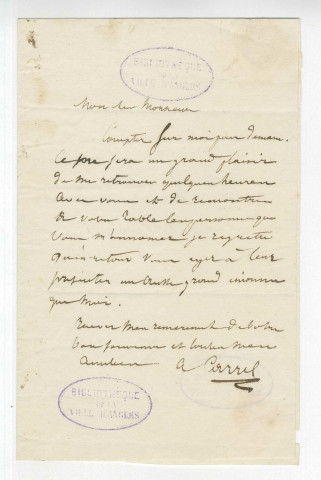 BIBLIOTHEQUE
DE LA
VILLE D'ANGERS
Mon cher Monsieur
Compter sur moi pour demain.
Ce sera un grand plaisir
de me retrouver quelques heures
avec vous et de rencontrer
à votre table les personnes que
vous m'annoncez je regrette
qu'en retour vous ayez à leur
présenter un aussi grand inconnu
que moi.
Recevez mes remerciements de votre
bon souvenir et toutes mes
amitiés
A Perrel
BIBLIOTHEQUE
DE LA
VILLE D'ANGERS